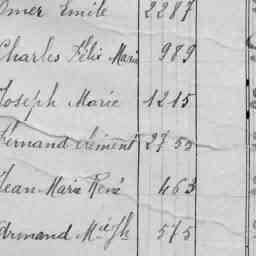 Omer Emile 2287
Charles Félix Marie 989
Joseph Marie 1215
Fernand Clément 2755
Jean Marie René 463
Armand M. Jph 575